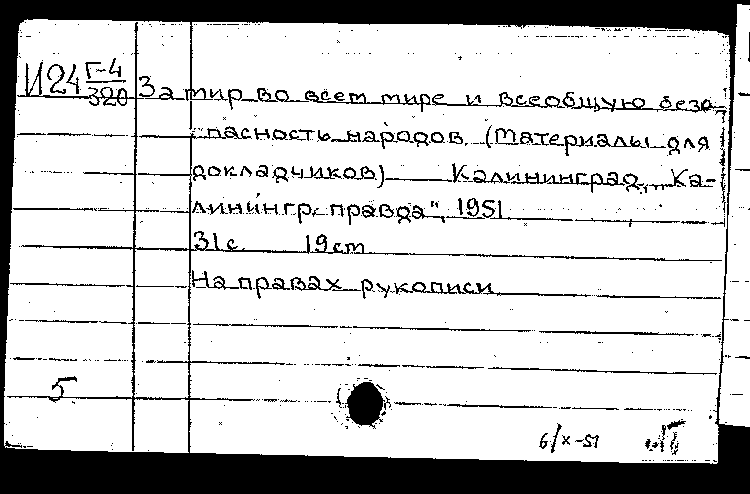 И24 Г-4
320
За мир во всем мире и всеобщую безо-
пасность народов. (Материалы для
докладчиков) Калининград, „Ка-
линингр. правда", 1951
31с 19см
На правах рукописи
5
6/x-51